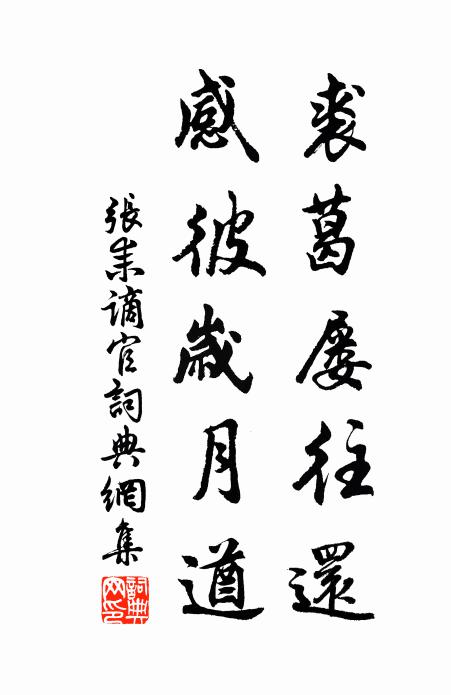 裘葛屡往還
感彼歲月遒
張耒謫官詞典網集
詞典網印